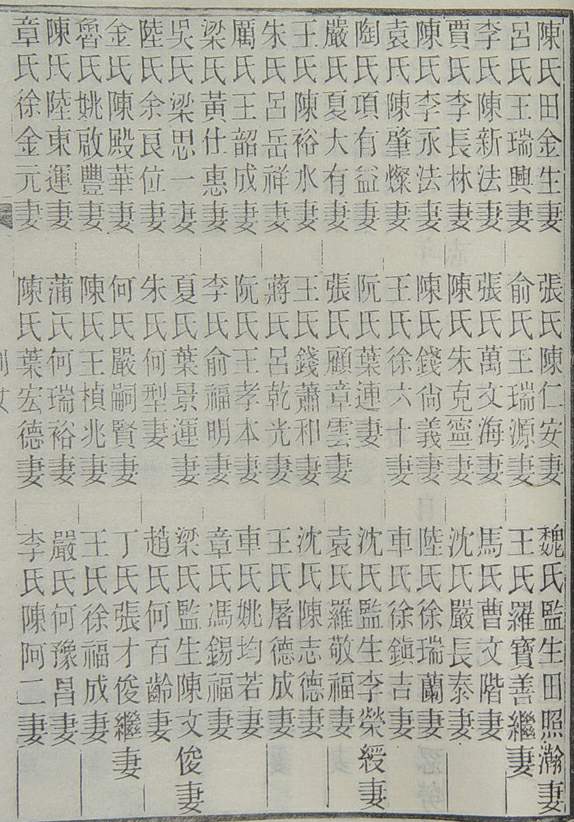 陳氏田金生妻 張氏陳仁安妻 魏氏監生田照瀚妻
呂氏王瑞興妻 俞氏王瑞源妻 王氏羅寶善繼妻
李氏陳新法妻 張氏萬文海妻 馬氏曹文階妻
賈氏李長林妻 陳氏朱克寧妻 沈氏嚴長泰妻
陳氏李永法妻 陳氏錢尙義妻 陸氏徐瑞蘭妻
袁氏陳肇燦妻 王氏徐六十妻 車氏徐鎭吉妻
陶氏項有益妻 阮氏葉連妻 沈氏監生李榮綬妻
嚴氏夏大有妻 張氏顧章雲妻 袁氏羅敬福妻
王氏陳裕水妻 王氏錢蕭和妻 沈氏陳志德妻
朱氏呂岳祥妻 蔣氏呂乾光妻 王氏屠德成妻
厲氏王韶成妻 阮氏王孝本妻 車氏姚均若妻
梁氏黃仕惠妻 李氏俞福明妻 章氏馮錫福妻
吳氏梁思一妻 夏氏葉景運妻 梁氏監生陳文俊妻
陸氏余良位妻 朱氏何型妻 趙氏何百齡妻
金氏陳殿華妻 何氏嚴嗣賢妻 丁氏張才俊繼妻
魯氏姚啟豐妻 陳氏王楨兆妻 王氏徐福成妻
陳氏陸東運妻 蒲氏何瑞裕妻 嚴氏何豫昌妻
章氏徐金元妻 陳氏葉宏德妻 李氏陳阿二妻